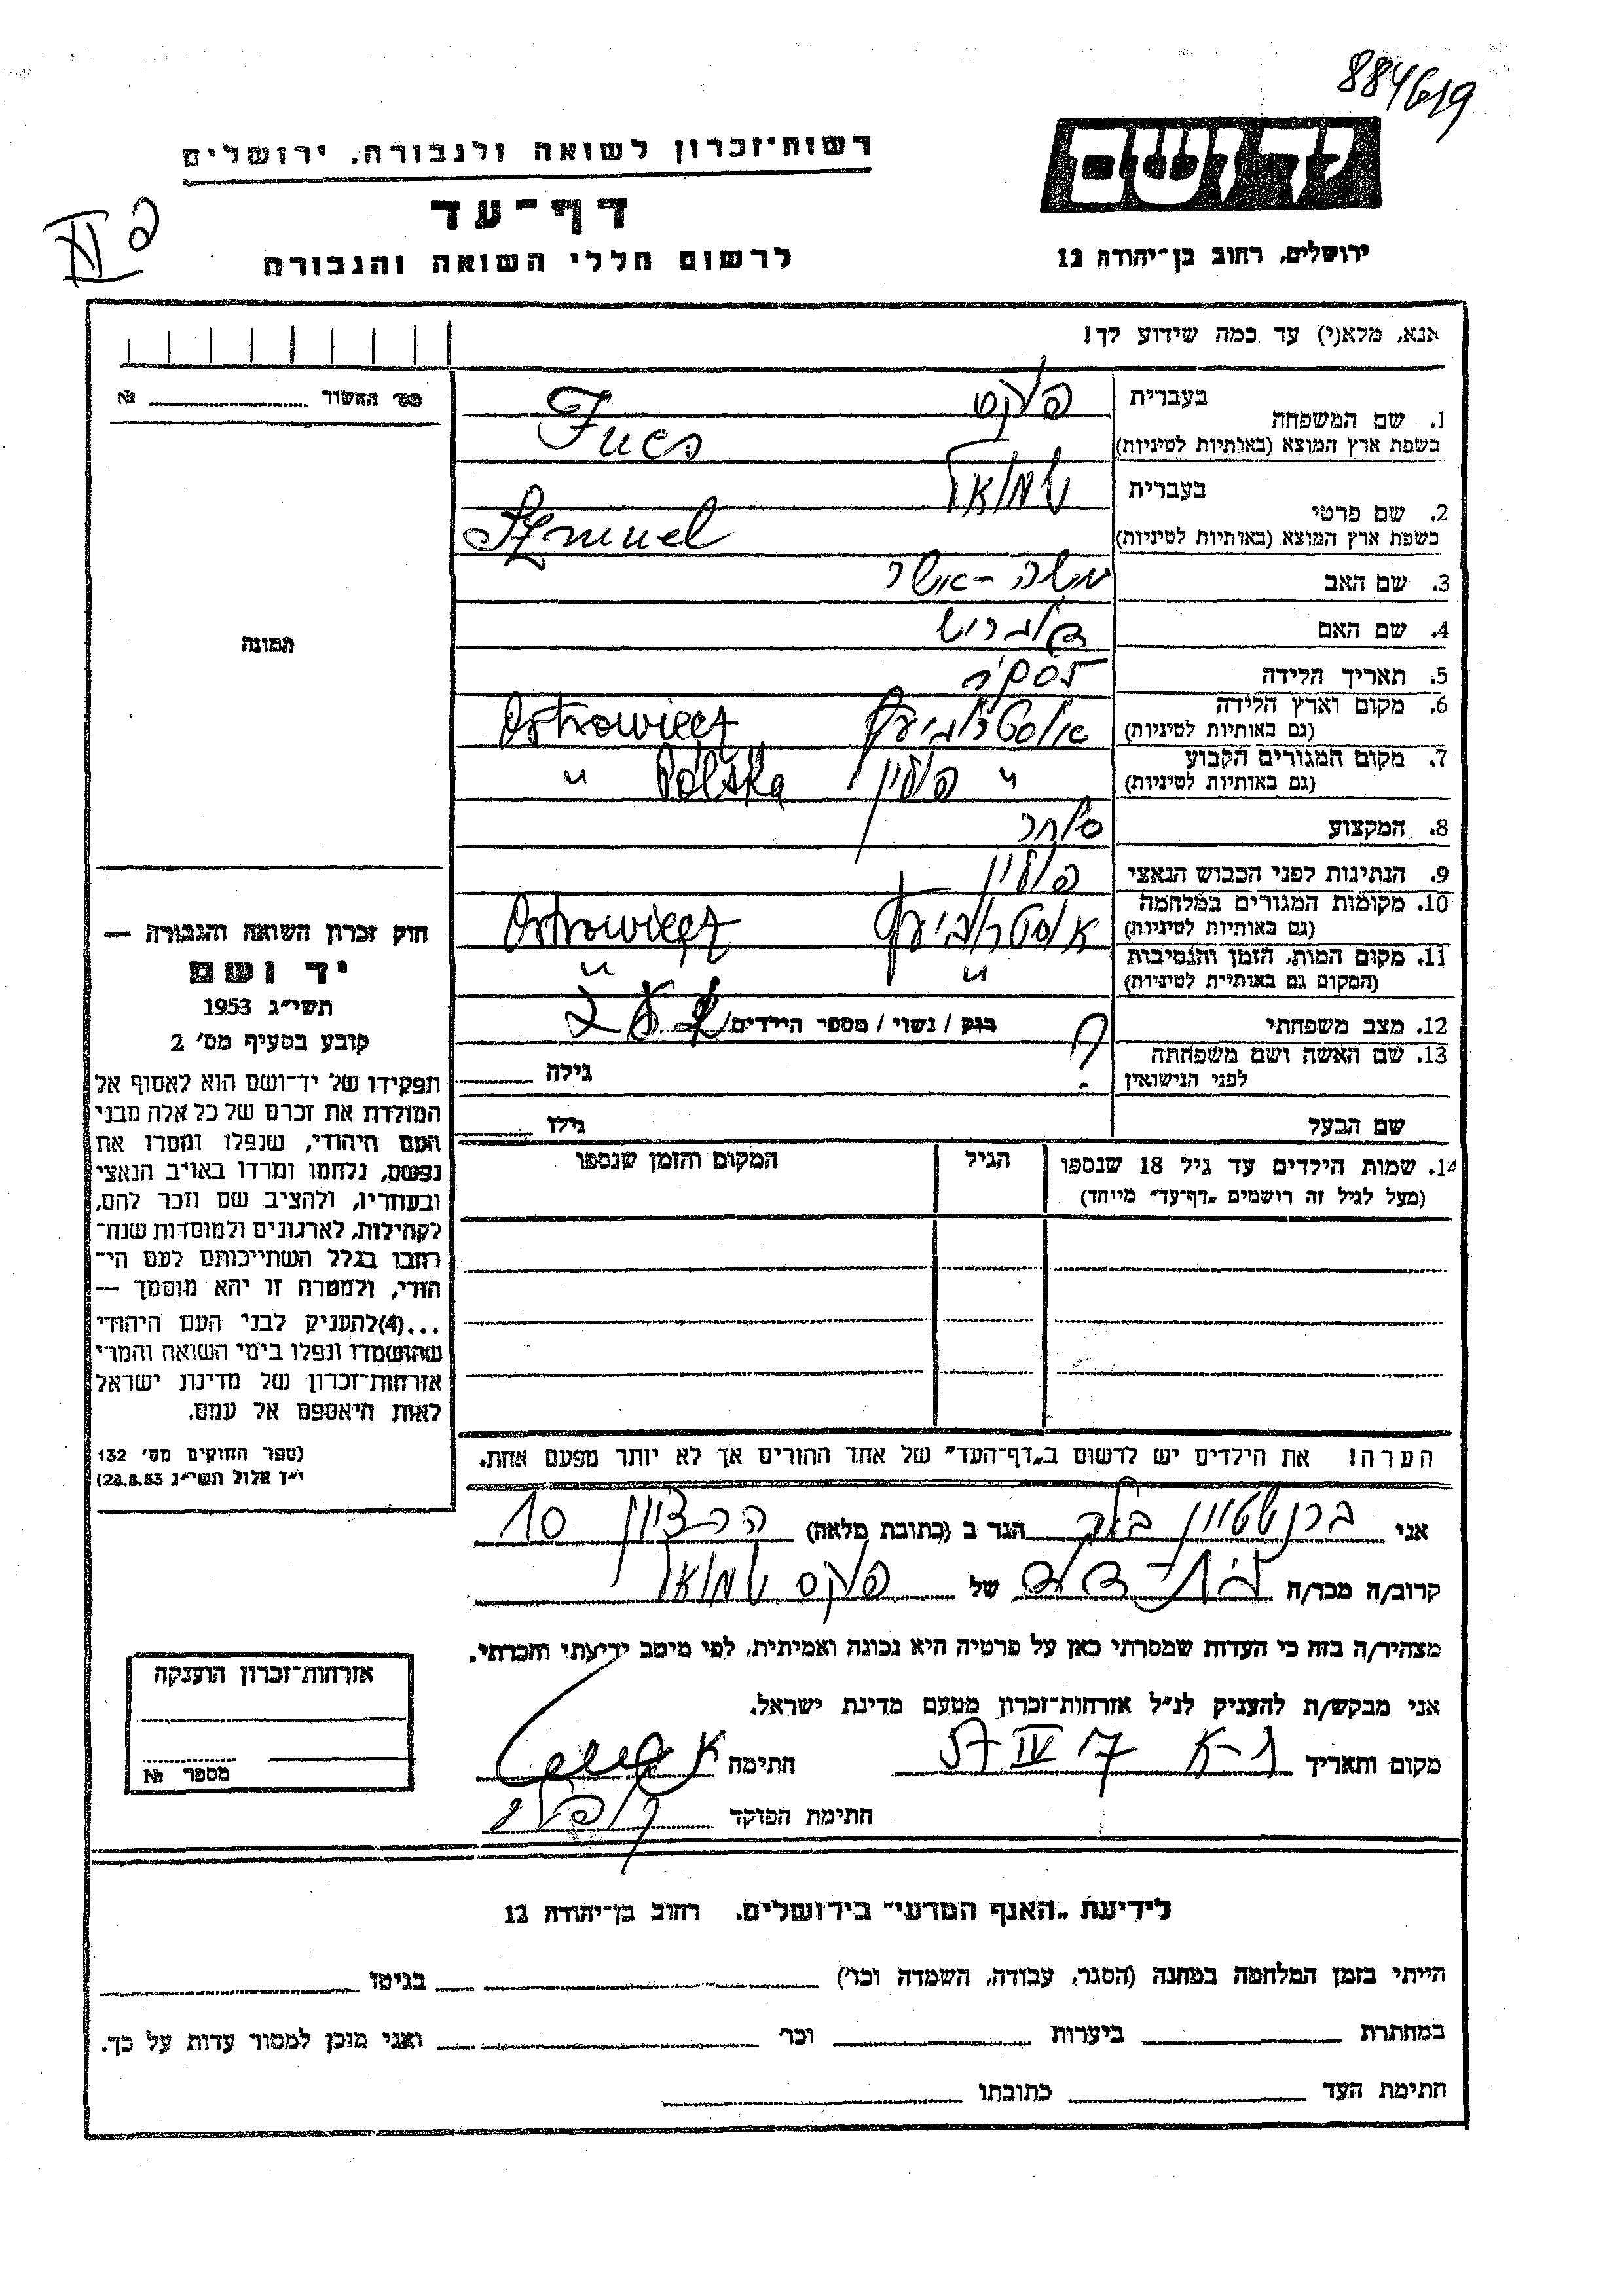 884619
יד ושם
רשות־זכרון לשואה ולגבורה, ירושלים
דף־עד
לרשום חללי השואה והגבורה
ירושלים, רחוב בן־יהודה 12
אנא, מלא(י) עד כמה שידוע לך!
מס׳ האשור № 
1. שם המשפחה
בעברית פוקס
בשפת ארץ המוצא (באותיות לטיניות) Fucs
2. שם פרטי
בעברית שמואל
בשפת ארץ המוצא (באותיות לטיניות) Szmuel
3. שם האב משה-אשר
4. שם האם
5. תאריך הלידה
6. מקום וארץ הלידה
(גם באותיות לטיניות) Ostrowiecz
7. מקום המגורים הקבוע
(גם באותיות לטיניות) " פולין Polska "
8. המקצוע סוחר
9. הנתינות לפני הכבוש הנאצי פולין
10. מקומות המגורים במלחמה
(גם באותיות לטיניות) Ostrowiecz
11. מקום המות, הזמן והנסיבות
(המקום גם באותיות לטיניות) " "
12. מצב משפחתי רוק / נשוי / מספר הילדים
13. שם האשה ושם משפחתה
לפני הנישואין גילה
שם הבעל גילו
14. שמות הילדים עד גיל 18 שנספו
(מעל לגיל זה רושמים „דף־עד" מיוחד)
הגיל
המקום והזמן שנספו
הערה! את הילדים יש לרשום ב„דף־העד" של אחד ההורים אך לא יותר מפעם אחת.
תמונה
חוק זכרון השואה והגבורה —
יד ושם
תשי״ג 1953
קובע בסעיף מס׳ 2
תפקידו של יד־ושם הוא לאסוף אל
המולדת את זכרם של כל אלה מבני
העם היהודי, שנפלו ומסרו את
נפשם, נלחמו ומרדו באויב הנאצי
ובעוזריו, ולהציב שם וזכר להם,
לקהילות, לארגונים ולמוסדות שנח־
רחבו בגלל השתייכותם לעם הי־
הודי, ולמטרה זו יהא מוסמך —
...(4)להעניק לבני העם היהודי
שהושמדו ונפלו בימי השואה והמרי
אזרחות־זכרון של מדינת ישראל
לאות היאספם אל עמם.
(ספר החוקים מס׳ 132
י״ז אלול תשי״ג 28.8.53)
אני ברנשטיין הגר ב (כתובת מלאה) הר ציון 10
קרוב/ה מכר/ה של פוקס שמואל
מצהיר/ה בזה כי העדות שמסרתי כאן על פרטיה היא נכונה ואמיתית, לפי מיטב ידיעתי והכרתי.
אני מבקש/ת להעניק לנ״ל אזרחות־זכרון מטעם מדינת ישראל.
מקום ותאריך ת-א 7 IV 57 חתימה
חתימת הפוקד
אזרחות־זכרון הוענקה
מספר №
לידיעת „האגף המדעי" בירושלים, רחוב בן־יהודה 12
הייתי בזמן המלחמה במחנה (הסגר, עבודה, השמדה וכו׳) בגיטו
במחתרת ביערות וכו׳ ואני מוכן למסור עדות על כך.
חתימת העד כתובתו